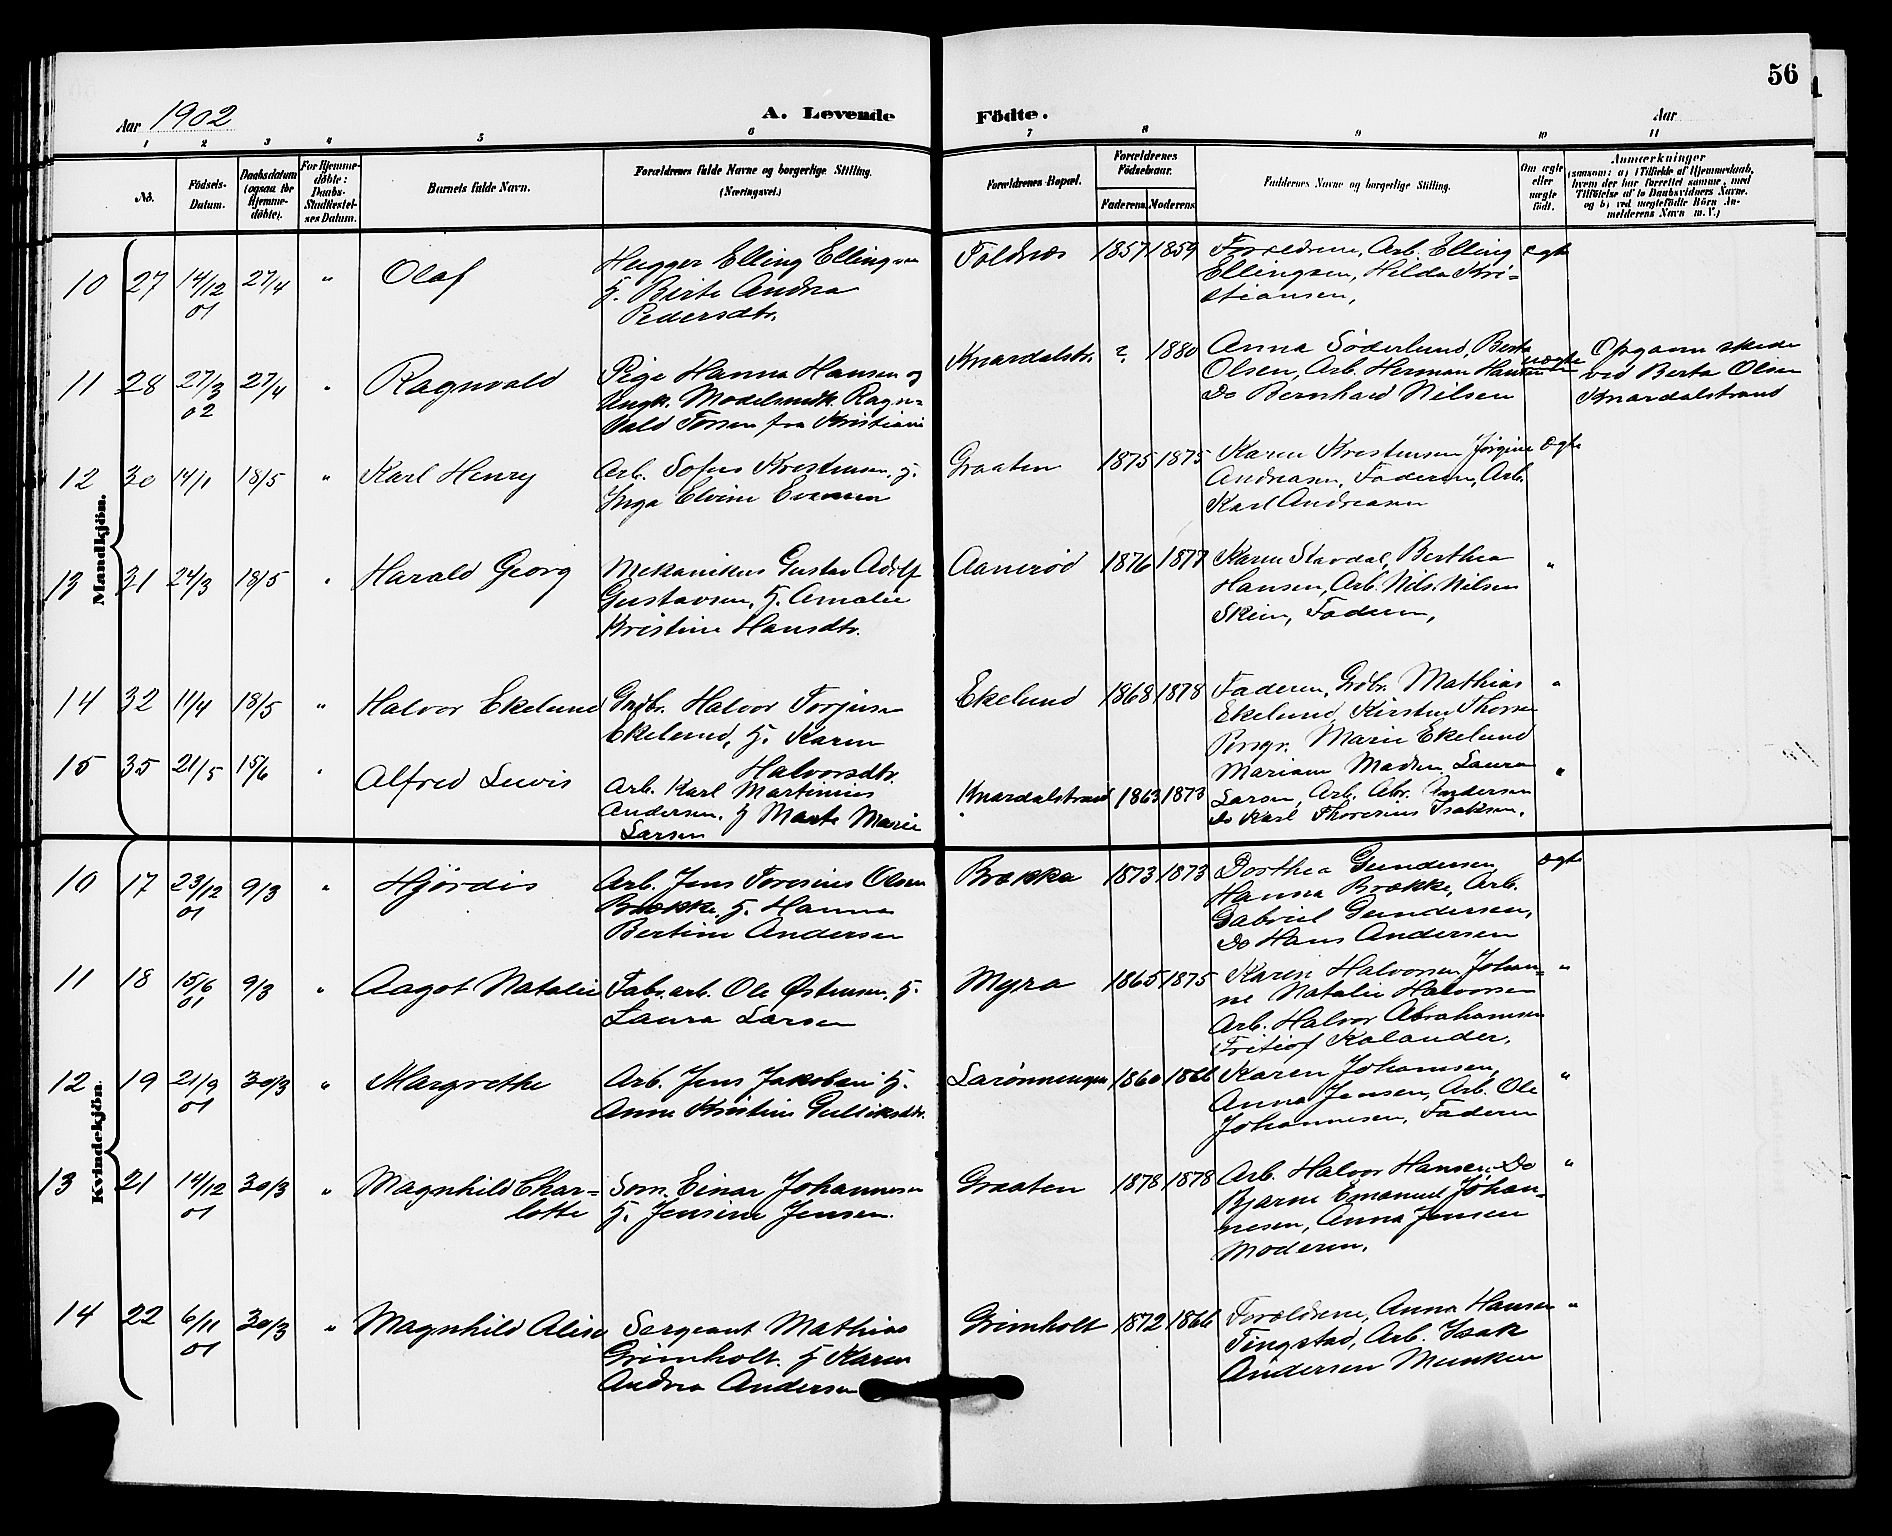 56
Aar 1902
A. Levende Födte.
Aar
1 2 3 4 5 6 7 8 9 10 11
No.
Födsels-Datum.
Daabsdatum (ogsaa for Hjemme-döbte).
For Hjemme-döbte: Daabs-Stadfæstel-ses Datum.
Barnets fulde Navn.
Forældrenes fulde Navne og borgerlige Stilling. (Næringsvei.)
Forældrenes Bopæl.
Forældrenes Födselsaar.
Faderens. Moderens.
Faddernes Navne og borgerlige Stilling.
Om ægte eller uægte födt.
Anmærkninger
(saasom: a) i Tilfælde af Hjemmedaab,
hvem der har forrettet samme, med
Tilföielse af to Daabsvidners Navne,
og b) ved uægtefödte Börn An-
melderens Navn m. V.)
Mandkjön.
10 27 14/12 01 27/4 " Olaf
Hugger Elling Ellingsen
H. Berte Andrea
Pedersdtr.
Foldnes 1857 1859
Forældrene, Arb. Elling
Ellingsen, Hilda Kri-
stiansen,
ægte
11 28 27/3 02 27/4 " Ragnvald
Pige Hanna Hansen og
Ungk. Modelsnedk. Ragn-
vald Torsen fra Kristiania
Knardalstr. ? 1880
Anna Söderlund, Berta
Olsen, Arb. Herman Hansen
Do Bernhard Nilsen
uægte
Opgaven skede
ved Berta Olsen
Knardalstrand
12 30 14/1 18/5 " Karl Henry
Arb. Sofus Kristensen, H.
Inga Elvine Evensen
Graaten 1875 1875
Karen Kristensen Jørgine
Andreasen, Faderen, Arb.
Karl Andreasen
ægte
13 31 24/3 18/5 " Harald Georg
Mekanikus Gustav Adolf
Gustavsen, H. Amalie
Kristine Hansdtr.
Aanerød 1876 1877
Karen Stavdal, Berthea
Hansen, Arb. Nils Nilsen
Skien, Faderen,
"
14 32 11/4 18/5 " Halvor Ekelund
Grdbr. Halvor Torjusen
Ekelund, H. Karen
Halvorsdtr.
Ekelund 1868 1878
Faderen, Grdbr. Mathias
Ekelund, Kirsten Thorsen
Pengr. Marie Ekelund
"
15 35 21/5 15/6 " Alfred Lewis
Arb. Karl Martinius
Andersen, H Marte Marie
Larsen
Knardalstrand 1863 1873
Mariane Madsen, Laura
Larsen, Arb. Abr. Andersen
Do Karl Thoresius Isaksen.
"
Kvindekjön.
10 17 23/12 01 9/3 " Hjørdis
Arb. Jens Toresius Olsen
Brække, H. Hanna
Bertine Andersen
Brække 1873 1873
Dorthea Gundersen
Hanna Brække, Arb.
Gabriel Gundersen,
Do Hans Andersen
ægte
11 18 15/6 01 9/3 " Aagot Natalie
Fabr.arb. Ole Østensen, H.
Laura Larsen
Myra 1865 1875
Karen Halvorsen Johan-
ne Natalie Halvorsen
Arb. Halvor Abrahamsen
Fritiof Kalander,
"
12 19 21/9 01 30/3 " Margrethe
Arb. Jens Jakobsen H.
Anne Kristine Gulliksdtr.
Larønningen 1860 1866
Karen Johansen,
Anna Jensen, Arb. Ole
Johannesen, Faderen
"
13 21 14/12 01 30/3 " Magnhild Char-
lotte
Søm. Einar Johannesen
H. Jensine Jensen.
Graaten 1878 1878
Arb. Halvor Hansen, Do
Bjarne Emanuel Johan-
nesen, Anna Jensen
Moderen,
"
14 22 6/11 01 30/3 " Magnhild Alise
Sergeant Mathias
Grimholt, H Karen
Andrea Andersen
Grimholt 1872 1866
Forældrene, Anna Hansen
Tingstad, Arb. Isak
Andersen Munken
"